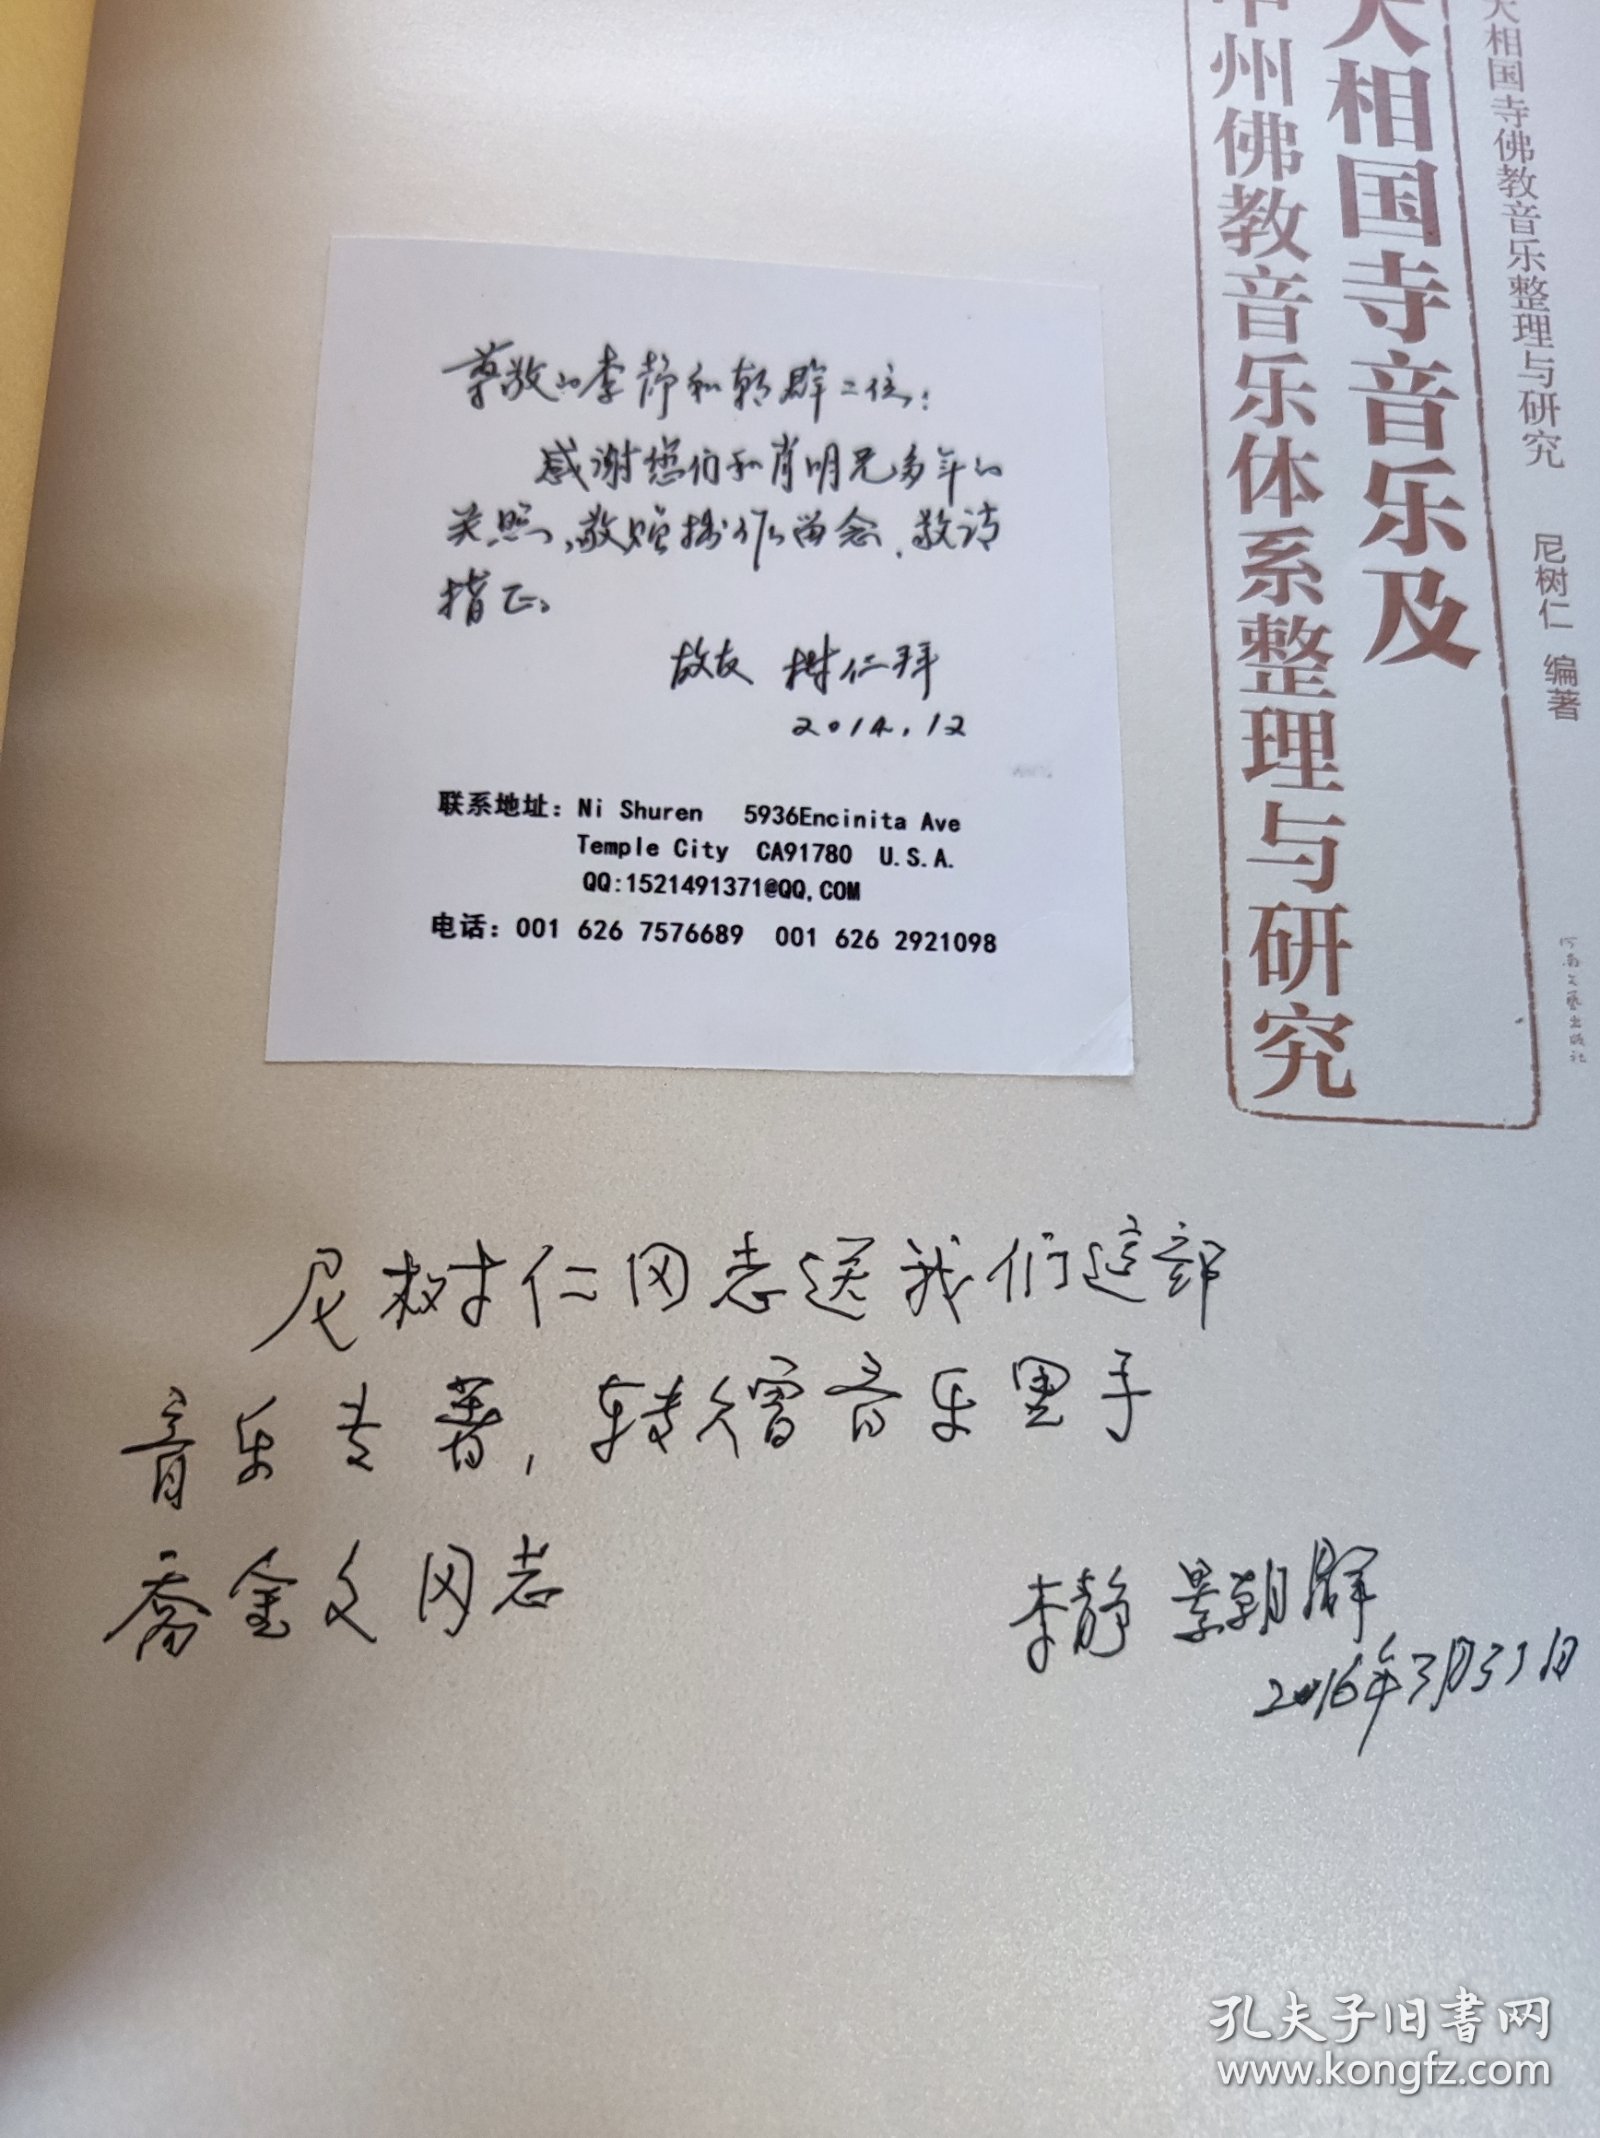 大相国寺音乐及
中州佛教音乐体系整理与研究
大相国寺佛教音乐整理与研究
尼树仁 编著
河南文艺出版社
尊敬的李静和朝群二位：
感谢您们和肖明兄多年的
关照，敬赠拙作留念，敬请
指正。
故友 树仁拜
2014.12
联系地址：Ni Shuren 5936Encinita Ave
Temple City CA91780 U.S.A.
QQ:1521491371@QQ,COM
电话：001 626 7576689 001 626 2921098
尼树仁同志送我们这部
音乐专著，转赠音乐里手
乔金文同志
李静 景朝群
2016年3月31日
孔夫子旧书网
www.kongfz.com